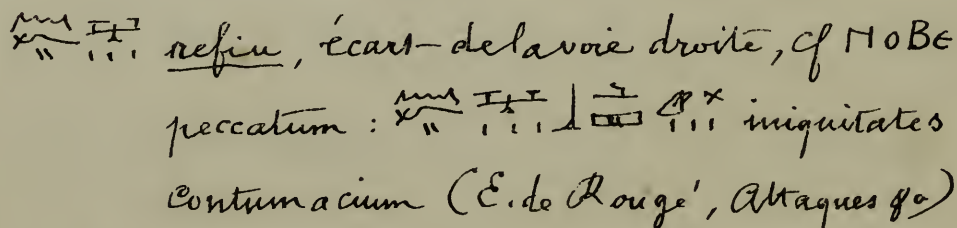 nefiu, écart-de la voie droite, cf ⲚⲞⲂⲈ
peccatum : iniquitates
contumacium (E. de Rougé, Attaques